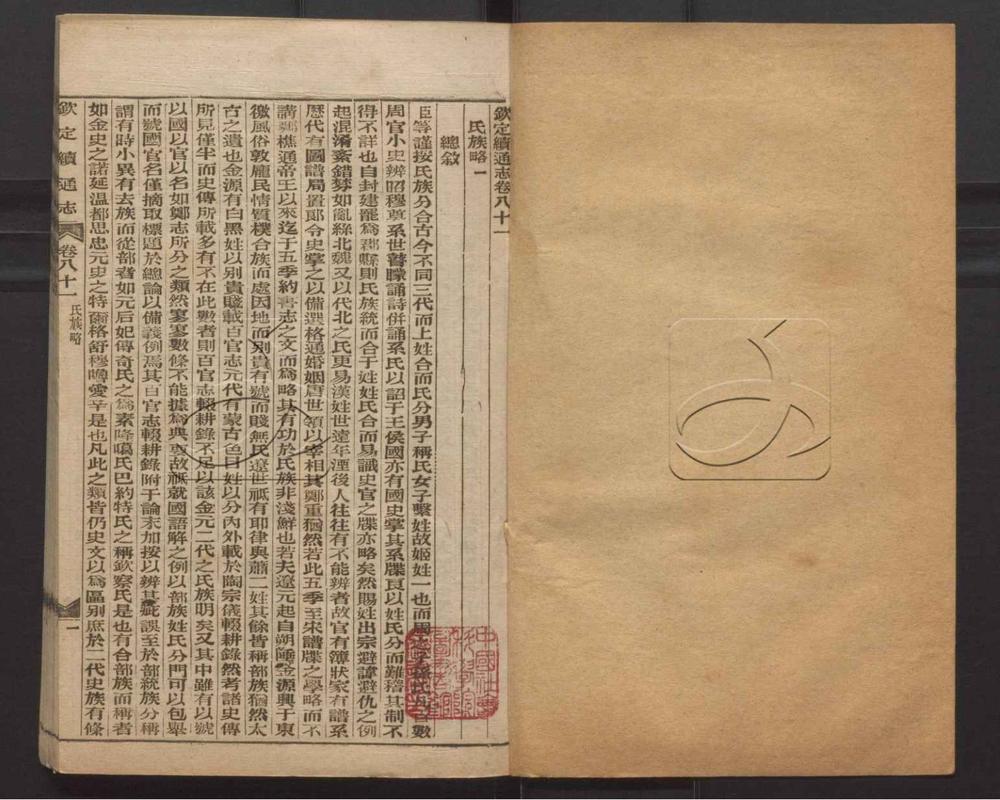 欽定續通志卷八十一
氏族略一
總敘
臣等謹按氏族分合古今不同三代而上姓合而氏分男子稱氏女子繫姓故姬姓一也而
周官小史辨昭穆奠系世瞽矇誦詩併誦系氏以詔于王侯國亦有國史掌其系牒良以姓氏分而難稽其制不
得不詳也自封建罷為郡縣則氏族統而合于姓姓氏合而易識史官之牒亦略矣然賜姓出宗避諱避仇之例
起混淆紊錯棼如亂絲北魏又以代北之氏更易漢姓世遠年湮後人往往有不能辨者故官有簿狀家有譜系
歷代有圖譜局置郎令史掌之以備選格通婚姻唐世領以宰相其鄭重猶然若此五季至宋譜牒之學略而不
講鄭樵通帝王以來迄于五季約書志之文而為略其有功於氏族非淺鮮也若夫遼元起自朔陲金源興于東
徼風俗敦龐民情質樸合族而處因地而別貴有號而賤無氏遼世祇有耶律與蕭二姓其餘皆稱部族猶然太
古之遺也金源有白黑姓以別貴賤載百官志元代有蒙古色目姓以分內外載於陶宗儀輟耕錄然考諸史傳
所見僅半而史傳所載多有不在此數者則百官志輟耕錄不足以該金元二代之氏族明矣又其中雖有以號
以國以官以名如鄭志所分之類然寥寥數條不能據為典要故祇就國語解之例以部族姓氏分門可以包舉
而號國官名僅摘取標題於總論以備義例焉其百官志輟耕錄附于論末加按以辨其疵誤至於部統族分稱
謂有時小異有去族而從部者如元后妃傳奇氏之為素隆噶氏巴約特氏之稱欽察氏是也有合部族而稱者
如金史之諾延溫都思忠元史之特爾格舒穆嚕愛辛是也凡此之類皆仍史文以為區別庶於二代史族有條
欽定續通志
卷八十一
氏族略
一